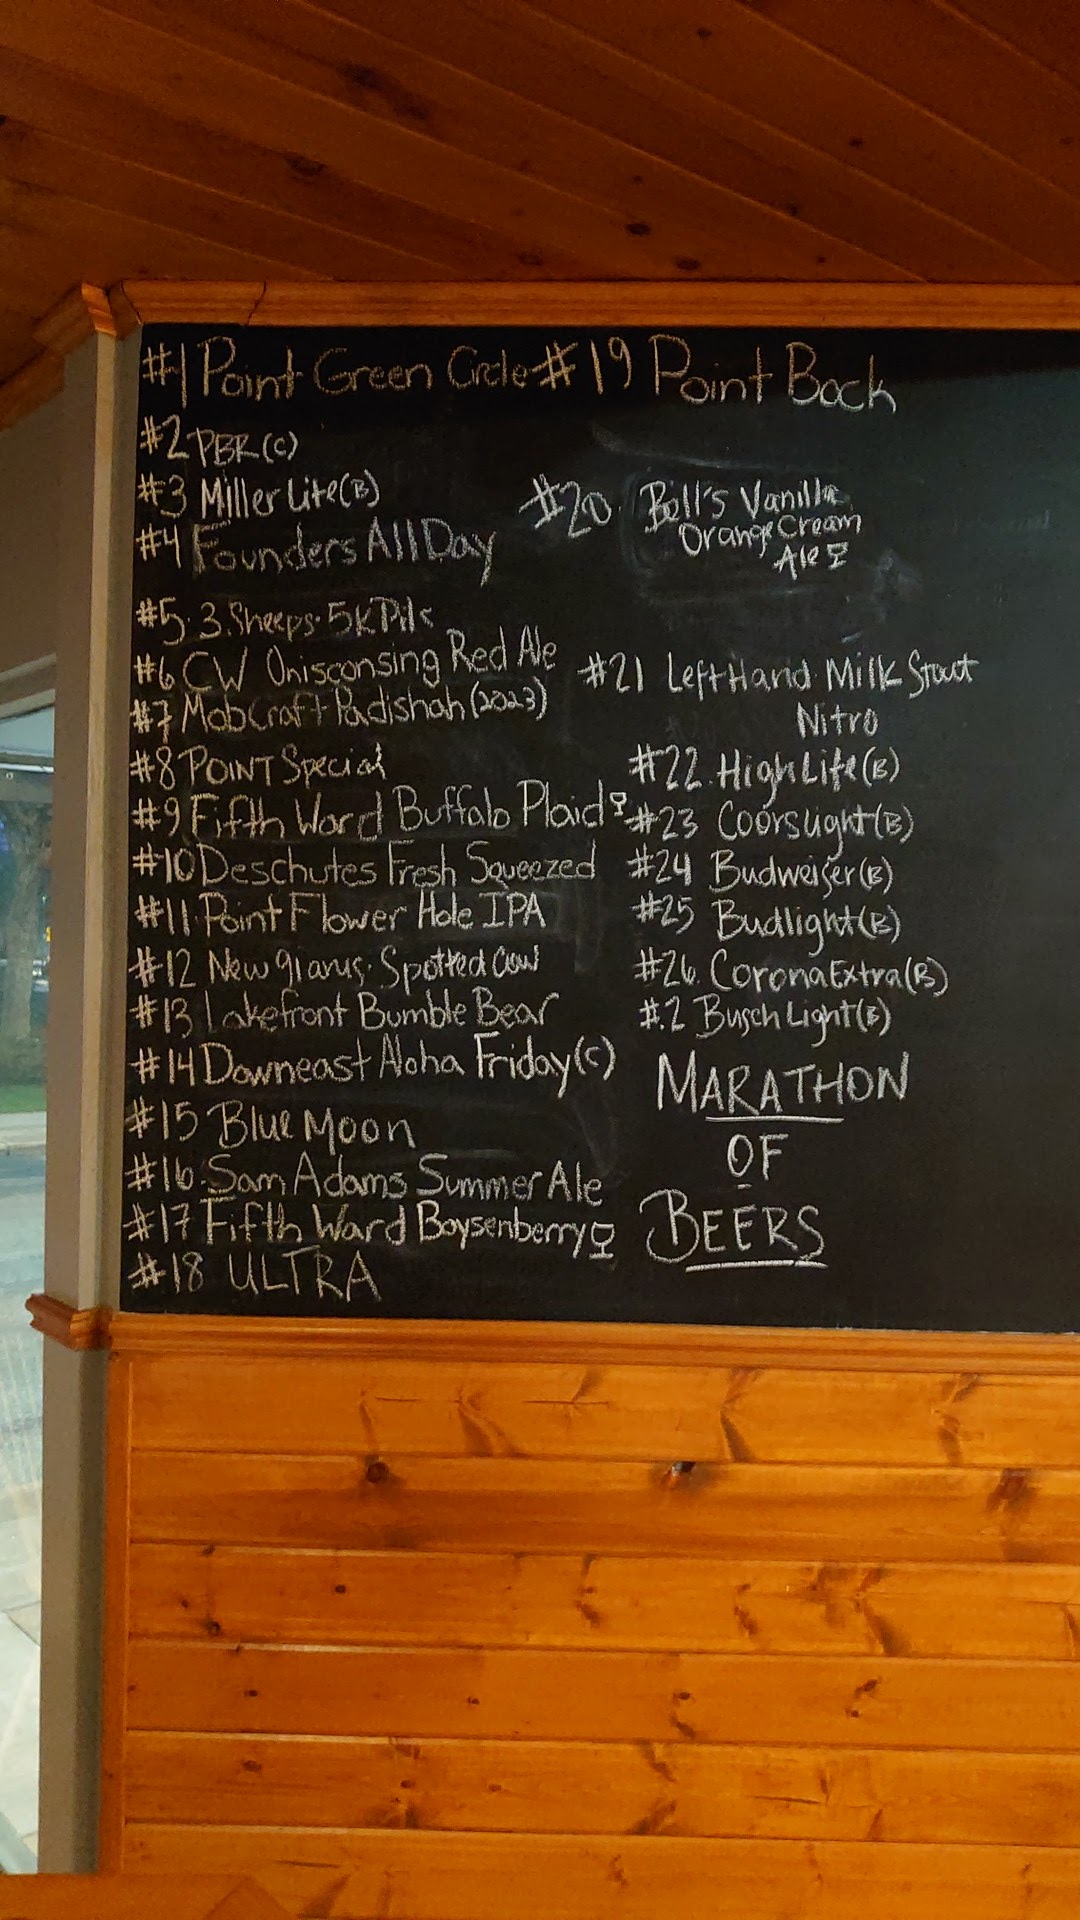 #1 Point Green Circle
#2 PBR (C)
#3 Miller Lite (B)
#4 Founders All Day
#5. 3. Sheeps. 5K Pils
#6 CW Onisconsing Red Ale
#7 MobCraft Padishah (2023)
#8 POINT Special
#9 Fifth Ward Buffalo Plaid
#10 Deschutes Fresh Squeezed
#11. Point Flower Hole IPA
#12 New glarus. Spotted Cow
#13 Lakefront Bumble Bear
#14 Downeast Aloha Friday (C)
#15 Blue Moon
#16. Sam Adams Summer Ale
#17 Fifth Ward Boysenberry
#18 ULTRA
#19 Point Bock
#20. Bell's Vanilla
Orange Cream
Ale
#21 Left Hand Milk Stout
Nitro
#22. High Life (B)
#23 Coors Light (B)
#24 Budweiser (B)
#25 Budlight (B)
#26. Corona Extra (B)
#.2 Busch Light (B)
MARATHON
OF
BEERS